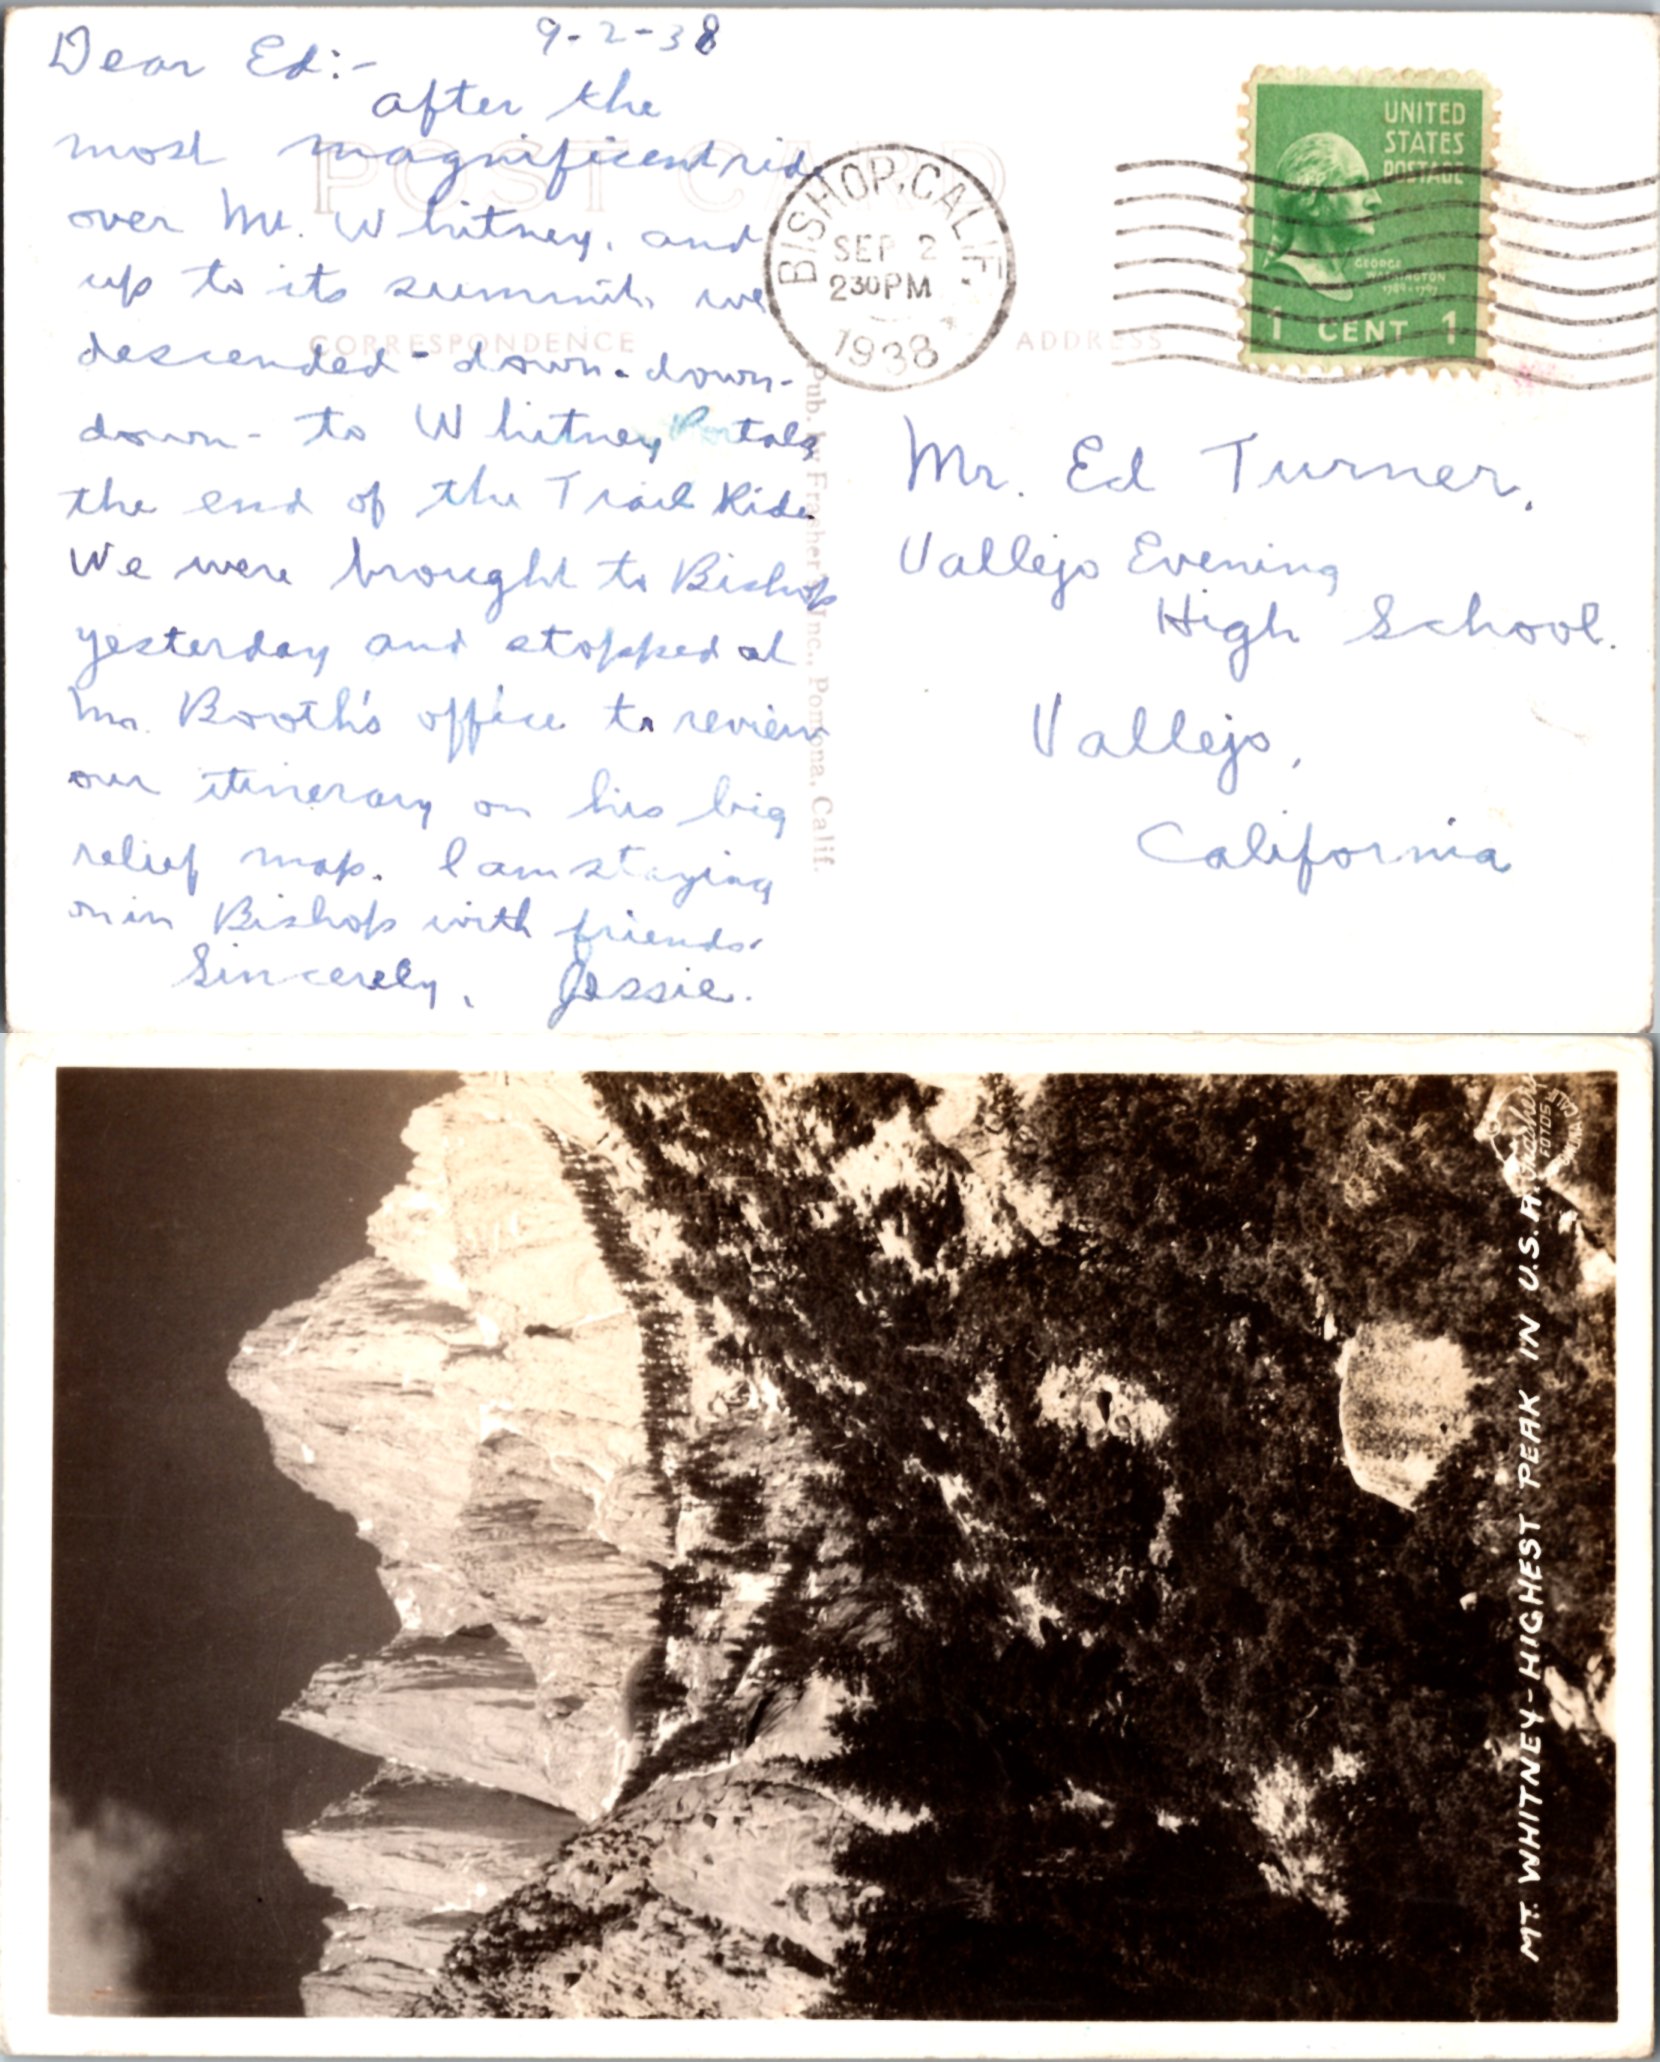 9-2-38
Dear Ed:-
after the
most magnificent ride
over Mt. Whitney, and
up to its summit, we
descended - down - down -
down - to Whitney Portals
the end of the Trail Ride.
We were brought to Bishop
yesterday and stopped at
Mr. Booth's office to review
our itinerary on his big
relief map. I am staying
on in Bishop with friends.
Sincerely, Jessie.
POST CARD
CORRESPONDENCE
ADDRESS
Pub. by Frasher's Inc., Pomona, Calif.
BISHOP, CALIF.
SEP 2
230PM
1938
UNITED
STATES
POSTAGE
GEORGE
WASHINGTON
1789-1797
1 CENT 1
Mr. Ed Turner,
Vallejo Evening
High School.
Vallejo,
California
MT. WHITNEY-HIGHEST PEAK IN U.S.A.
Frashers
FOTOS
CALIF.